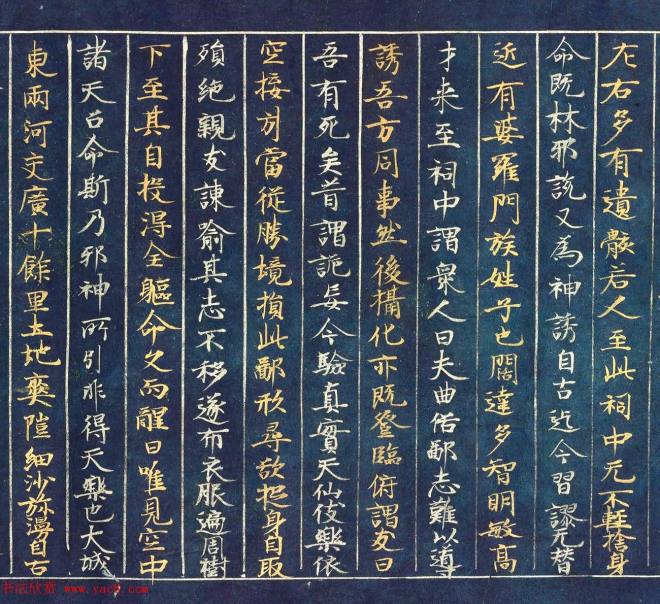 左右多有遺骸若人至此祠中无不輕捨身
命既怵邪說又為神誘自古迄今習謬无替
近有婆羅門族姓子也闊達多智明敏高
才来至祠中謂衆人曰夫曲俗鄙志難以導
誘吾方同事然後攝化亦既登臨俯謂友曰
吾有死矣昔謂詭妄今驗真實天仙伎樂依
空接引當從勝境捐此鄙形尋欲投身自取
殞絶親友諫喻其志不移遂布衣服遍周樹
下至其自投得全軀命久而醒曰唯見空中
諸天召命斯乃邪神所引非得天樂也大城
東兩河交廣十餘里土地爽塏細沙弥漫自古
书法欣赏 www.yac8.com